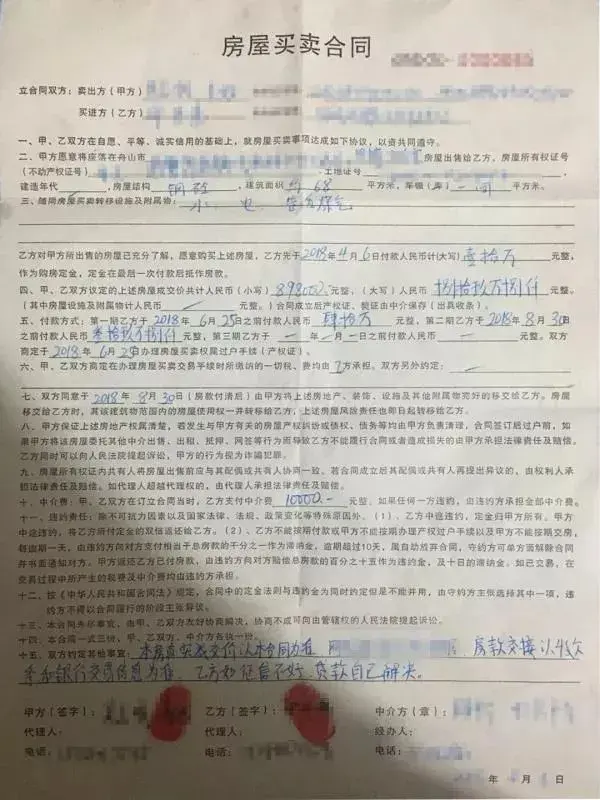 房屋买卖合同
立合同双方：卖出方（甲方）
买进方（乙方）
一、甲、乙双方在自愿、平等、诚实信用的基础上，就房屋买卖事项达成如下协议，以资共同遵守。
二、甲方愿意将座落在舟山市 房屋出售给乙方，房屋所有权证号
（不动产权证号） 土地证号
建造年代 ，房屋结构 钢砼 ，建筑面积 约68 平方米，车棚（库） 一间 平方米。
三、随同房屋买卖转移设施及附属物： 水、电、管道煤气
乙方对甲方所出售的房屋已充分了解，愿意购买上述房屋，乙方先于2018年4月6日付款人民币计（大写） 壹拾万 元整，
作为购房定金，定金在最后一次付款后抵作房款。
四、甲、乙双方议定的上述房屋成交价共计人民币（小写）898000元整，（大写）人民币 捌拾玖万捌仟 元整。
（其中房屋设施及附属物计人民币 / 元整。）合同成立后产权证、契证由中介保存（出具收条）。
五、付款方式：第一期乙方于2018年6月25日之前付款人民币 肆拾万 元整，第二期乙方于2018年8月30日
之前付款人民币 叁拾玖万捌仟 元整，第三期乙方于 年 月 日之前付款人民币 元整。双方
商定于2018年6月25日办理房屋买卖权属过户手续（产权证）。
六、甲、乙双方商定在办理房屋买卖交易手续时所缴纳的一切税、费均由 方承担。双方另外约定：
七、双方同意于2018年8月30日（房款付清后）由甲方将上述房地产、装饰、设施及其他附属物完好的移交给乙方。房屋
移交给乙方时，其该建筑物范围内的房屋使用权一并转移给乙方；上述房屋风险责任也即日起转移给乙方。
八、甲方保证上述房地产权属清楚，若发生与甲方有关的房屋产权纠纷或债权、债务等均由甲方负责清理，合同签订后过户前，如
果甲方将该房屋委托其他中介出售、出租、抵押、网签等行为而导致乙方不能履行合同或者造成损失的由甲方承担法律责任及赔偿。
乙方同时可以向人民法院提起诉讼，甲方的行为视为诈骗犯罪。
九、房屋所有权证内共有人将房屋出售前应与其配偶或共有人协商一致。若合同成立后其配偶或共有人再提出异议的，由权利人承
担法律责任及赔偿。如代理人超越代理权的，由代理人承担法律责任及赔偿。
十、中介费：甲、乙双方在订立合同当时，乙方支付中介费 10000- 元整。如果任何一方违约，由违约方承担全部中介费。
十一、违约责任：除不可抗力因素以及国家法律、法规、政策变化等特殊原因外，（1）、乙方中途违约，定金归甲方所有。甲方
中途违约，将乙方所付定金的双倍返还给乙方。（2）、乙方不能按期付款或甲方不能按期办理产权过户手续以及甲方不能按期交房，
每逾期一天，由违约方向对方支付相当于总房款的千分之一作为滞纳金，逾期超过10天，属自动放弃合同，守约方可单方面解除合同
并书面通知对方。甲方返还乙方已付房款，由违约方向对方赔偿总房款的百分之十五作为违约金，及十日的滞纳金。如已交易，在
交易过程中所产生的税费及中介费均由违约方承担。
十二、按《中华人民共和国合同法》规定，合同中的定金罚则与违约金为同时约定但是不能并用，由守约方主张选择其中一项，违
约方不得以合同履行的阶段主张异议。
十三、本合同未尽事宜，由甲、乙方友好协商解决，协商不成可向由管辖权的人民法院提起诉讼。
十四、本合同一式三份，甲、乙方、中介方各执一份。
十五、双方约定其他事宜： 本房真实成交价以本合同为准 房款交接以收
条和银行交易信息为准，乙方如征信不好，贷款自己解决。
甲方（签字）： 乙方（签字）： 中介方（章）：
代理人： 代理人： 经办人：
电话： 电话： 电话：
年 月 日